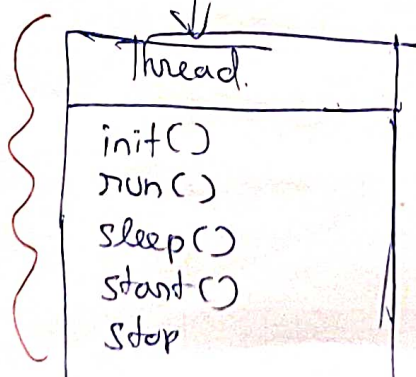 Thread.
init()
run()
sleep()
start()
stop